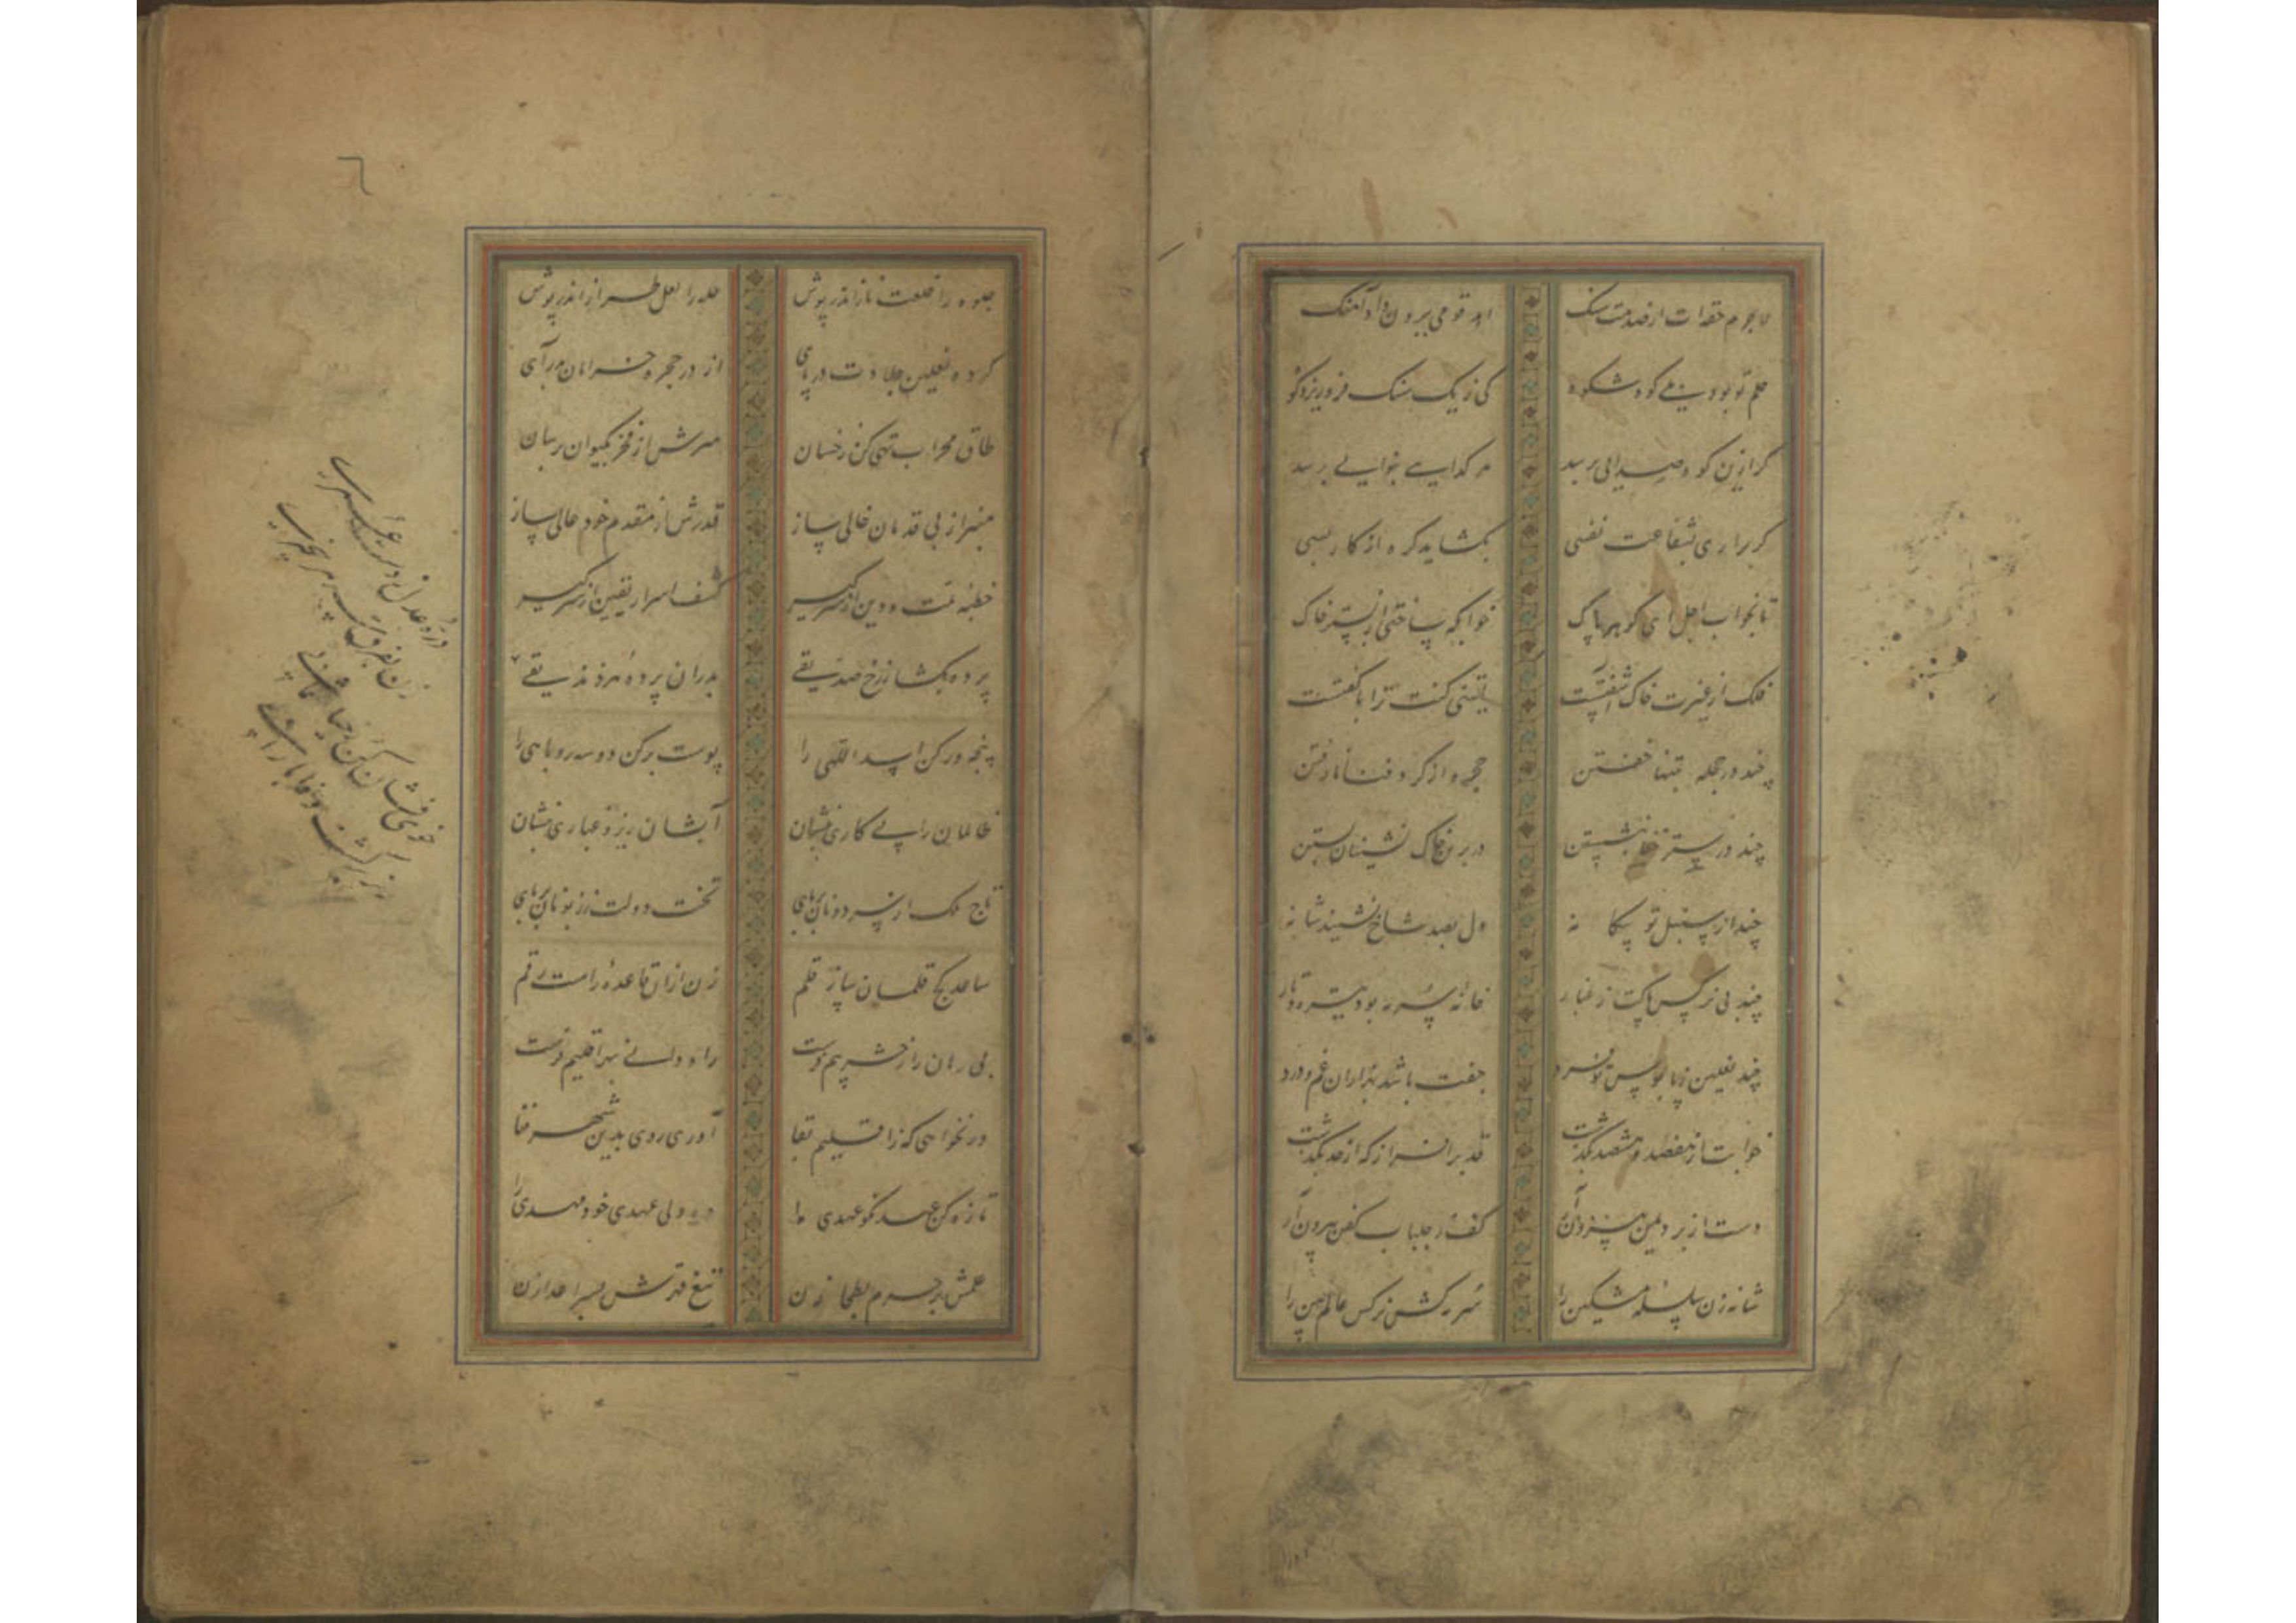 لاجرم حقه‌ات از صدمت سنگ اهد قومی برون داد آهنگ
حلم تو بود بنی کوه شکوه کی ز یک سنگ فرو ریزد کو
گر ازین کوه صدایی برسد هر گدایی بنوایی برسد
گر براری بشفاعت نفسی بگشاید گره از کار بسی
تا بخواب اجل ای گوهر پاک خوابگه ساختی از بستر خاک
فلک از غیرت خاک آشفتست یا لیتنی کنت ترابا گفتست
چند در حجله تنها خفتن حجره از گرد فنا نارفتن
چند در ستر خفا بنشستن در برین خاک نشینان بستن
چند از سنبل تو بیگا نه دل بصد شاخ نشیند شانه
چند بی نرگس پاکت ز غبار خانه سرمه بود تیره و تار
چند نعلین ز پابوس تو فرد جفت باشد بهزاران غم و درد
خوابت از هفصد و هشصد بگذشت قد برافراز که از حد بگذشت
دست از برد یمن بیرون آر کف ز جلباب کفن بیرون آر
شانه زن سلسله مشکین را سرمه کش نرگس عالم بین را
جلوه را خلعت ناز اندر پوش حله را لعل طراز اندر پوش
کرده نعلین جلادت در پای از در حجره خرامان بدر آی
طاق محراب تهی کن ز خسان سرش از فخر بکیوان برسان
منبر از بی قدمان خالی ساز قدرش از مقدم خود عالی ساز
خطبه ملت و دین از سر گیر کشف اسرار یقین از سر گیر
پرده بگشا ز رخ صدیقی بدران پرده هر زندیقی
پنجه ور کن اسد اللهی را پوست برکن دو سه روباهی را
ظالمان را پی کاری بنشان آبشان ریز و غباری بنشان
تاج ملک از سر دونان بربای تخت دولت ز زبونان بربای
ساعد کج قلمان ساز قلم زن از ان قاعده راست رقم
بی رهان را ز حشر بیم فرست راه دانی بهر اقلیم فرست
ور نخواهی که ز اقلیم بقا آوری روی بدین شهر فنا
تازه کن عهد نکو عهدی را ده ولی عهدی خود مهدی را
علمش بر حرم بطحا زن تیغ قهرش بسر اعدا زن
زن بفرق سر هر خیره سری
خوی فشان کن ز حیا عثمان را
٦